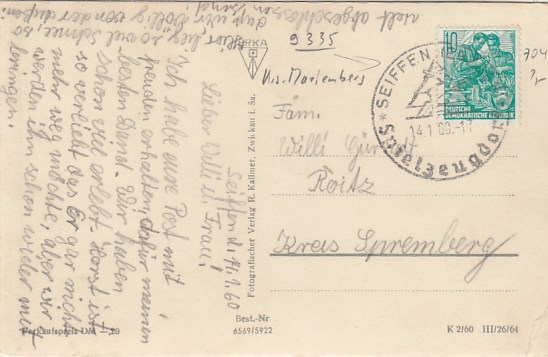 Seiffen d. 14.1.60
Liebe Willi u. Frau!
Ich habe eure Post mit
penden erhalten dafür meinen
besten Dank. Wir haben
schon viel erlebt. Horst ist
so verliebt das Er gar nicht
mehr weg möchte, aber wir
werden ihn schon wieder mit
bringen.
hier liegt so viel Schnee, so
das wir völlig von der außen
welt abgeschlossen
9335
Krs. Marienberg
704
Fotografischer Verlag R. Kallmer, Zwickau i. Sa.
Best.-Nr
6569/5922
10
DEUTSCHE
DEMOKRATISCHE REPUBLIK
SEIFFEN
14.1.60
Spielzeugdorf
Fam.
Willi
Roitz
Kreis Spremberg
Verkaufspreis DM —.20
K 2/60 III/26/64